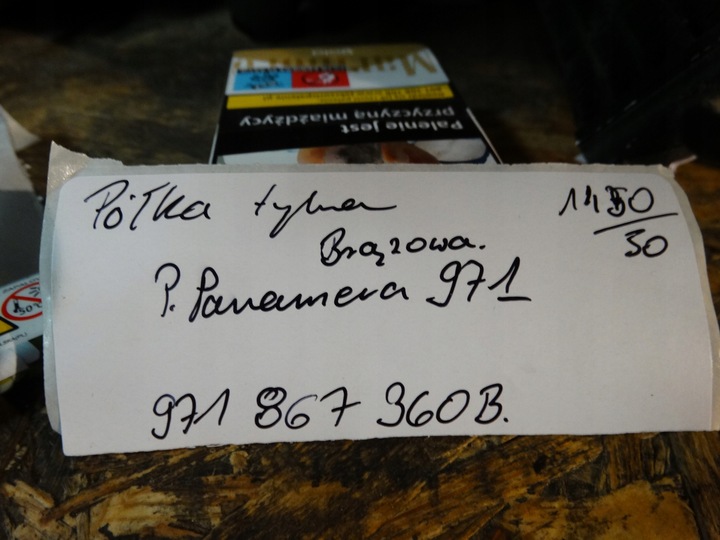 Półka tylna
1450
30
Brązowa.
P. Panamera 971
971 867 360B.
Palenie jest
przyczyną miażdżycy